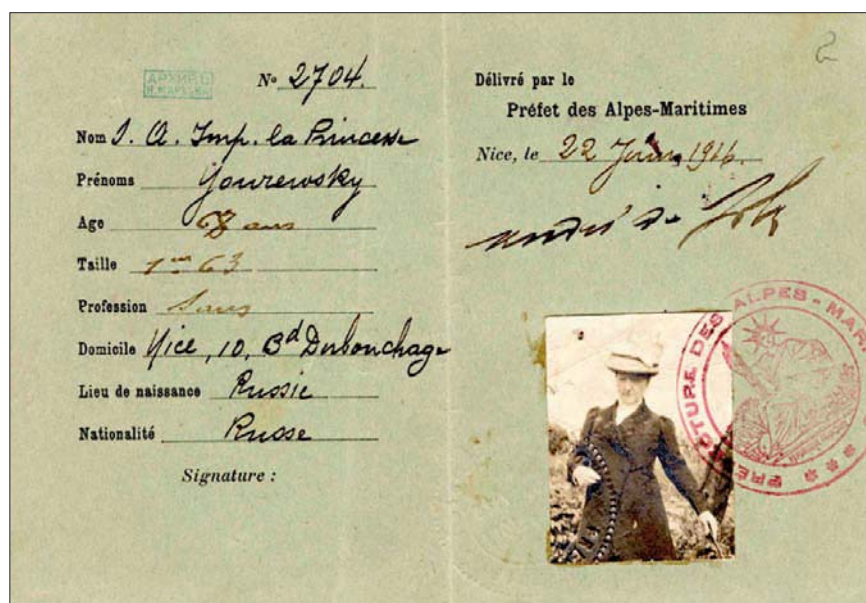 2
N° 2704.
Nom S. A. Imp. la Princesse
Prénoms Yourewsky
Age 68 ans
Taille 1m 63
Profession Sans
Domicile Nice, 10, Bd Dubouchage
Lieu de naissance Russie
Nationalité Russe
Signature :
Délivré par le
Préfet des Alpes-Maritimes
Nice, le 22 Juin 1916.
André de
PRÉFECTURE DES ALPES - MAR